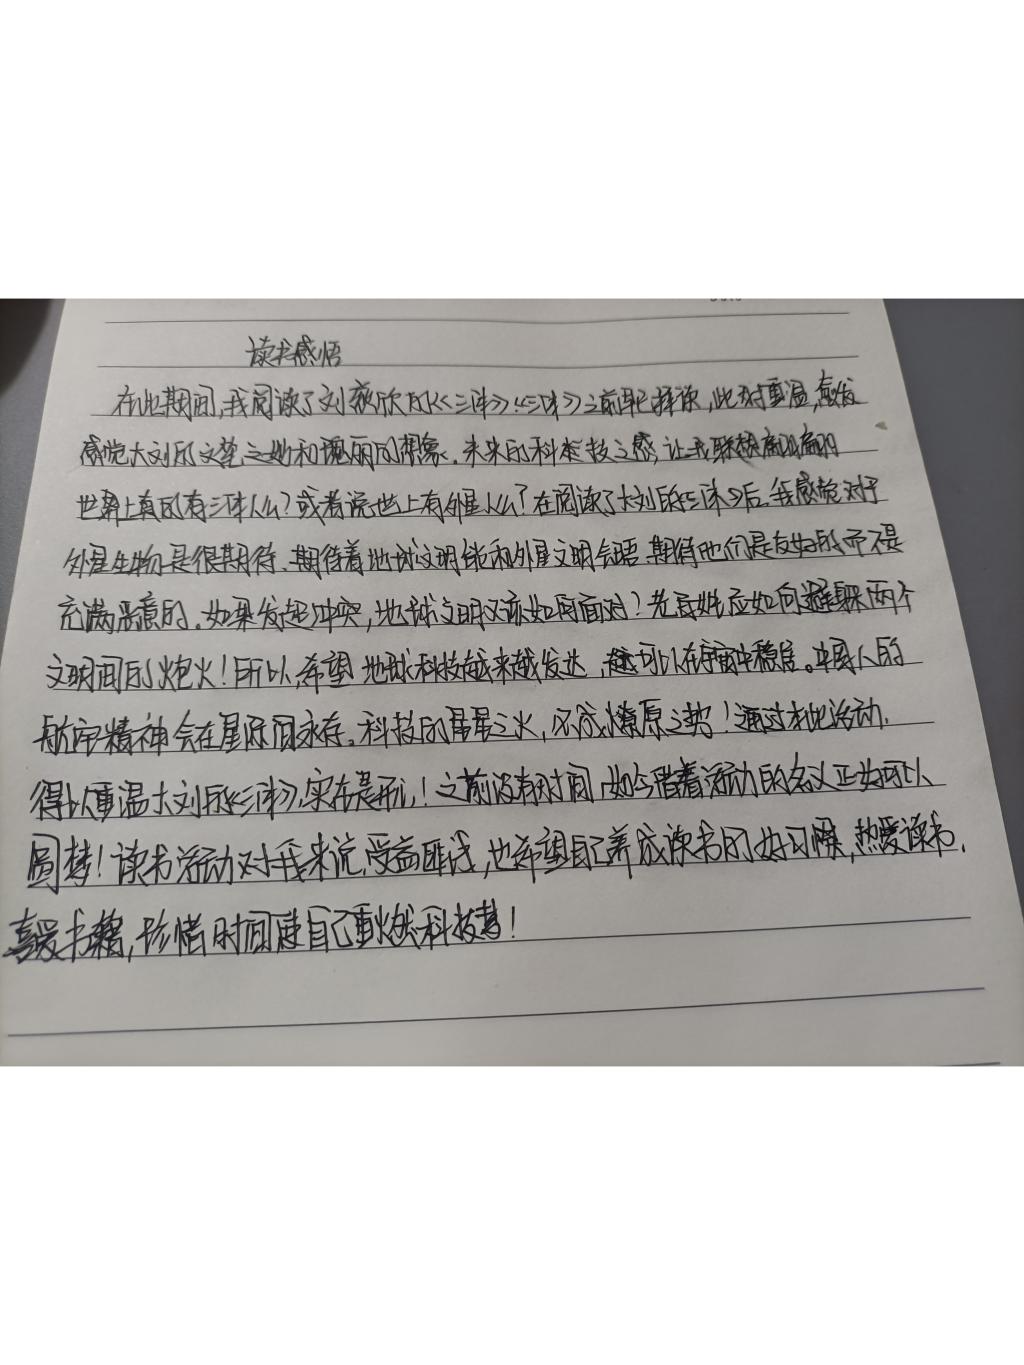 读书感悟
在此期间,我阅读了刘慈欣的《三体》.《三体》之前早已择读,此时重温,愈发
感觉大刘的文笔之妙和瑰丽的想象.未来的科技之感,让我联想
世界上真的有三体人么?或者说世上有外星人么?在阅读了大刘的《三体》后.我感觉对于
外星生物是很期待、期待着地球文明能和外星文明会晤.期待他们是友好的而不是
充满恶意的.如果发起冲突,地球文明又该如何面对?老百姓应如何躲避两个
文明间的炮火!所以,希望地球科技越来越发达,可以在宇宙中稳居。中国人的
航宇精神会在星际间永存。科技的星星之火,必成燎原之势!通过本次活动.
得以重温大刘的《三体》,实在是开心!之前没有时间,如今借着活动的名义正好可以
圆梦!读书活动对我来说.受益匪浅,也希望自己养成读书的好习惯,热爱读书.
喜爱书籍,珍惜时间使自己重燃科技梦!